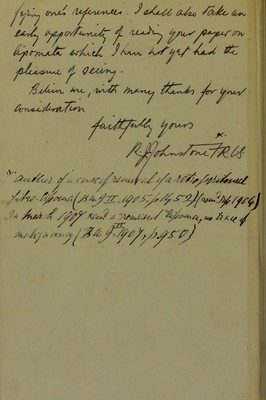 fying one's references. I shall also take an
early opportunity of reading your paper on
lipomata which I have not yet had the
pleasure of seeing.
Believe me, with many thanks for your
consideration
faithfully yours
R J Johnstone FRCS
* author of a case of removal of a retroperitoneal
fibro-lipoma (B.M.J. II. 1905. p. 1452)
In March 1907 a lipoma, no trace of
malignancy (B.M.J. 1907, p. 950)